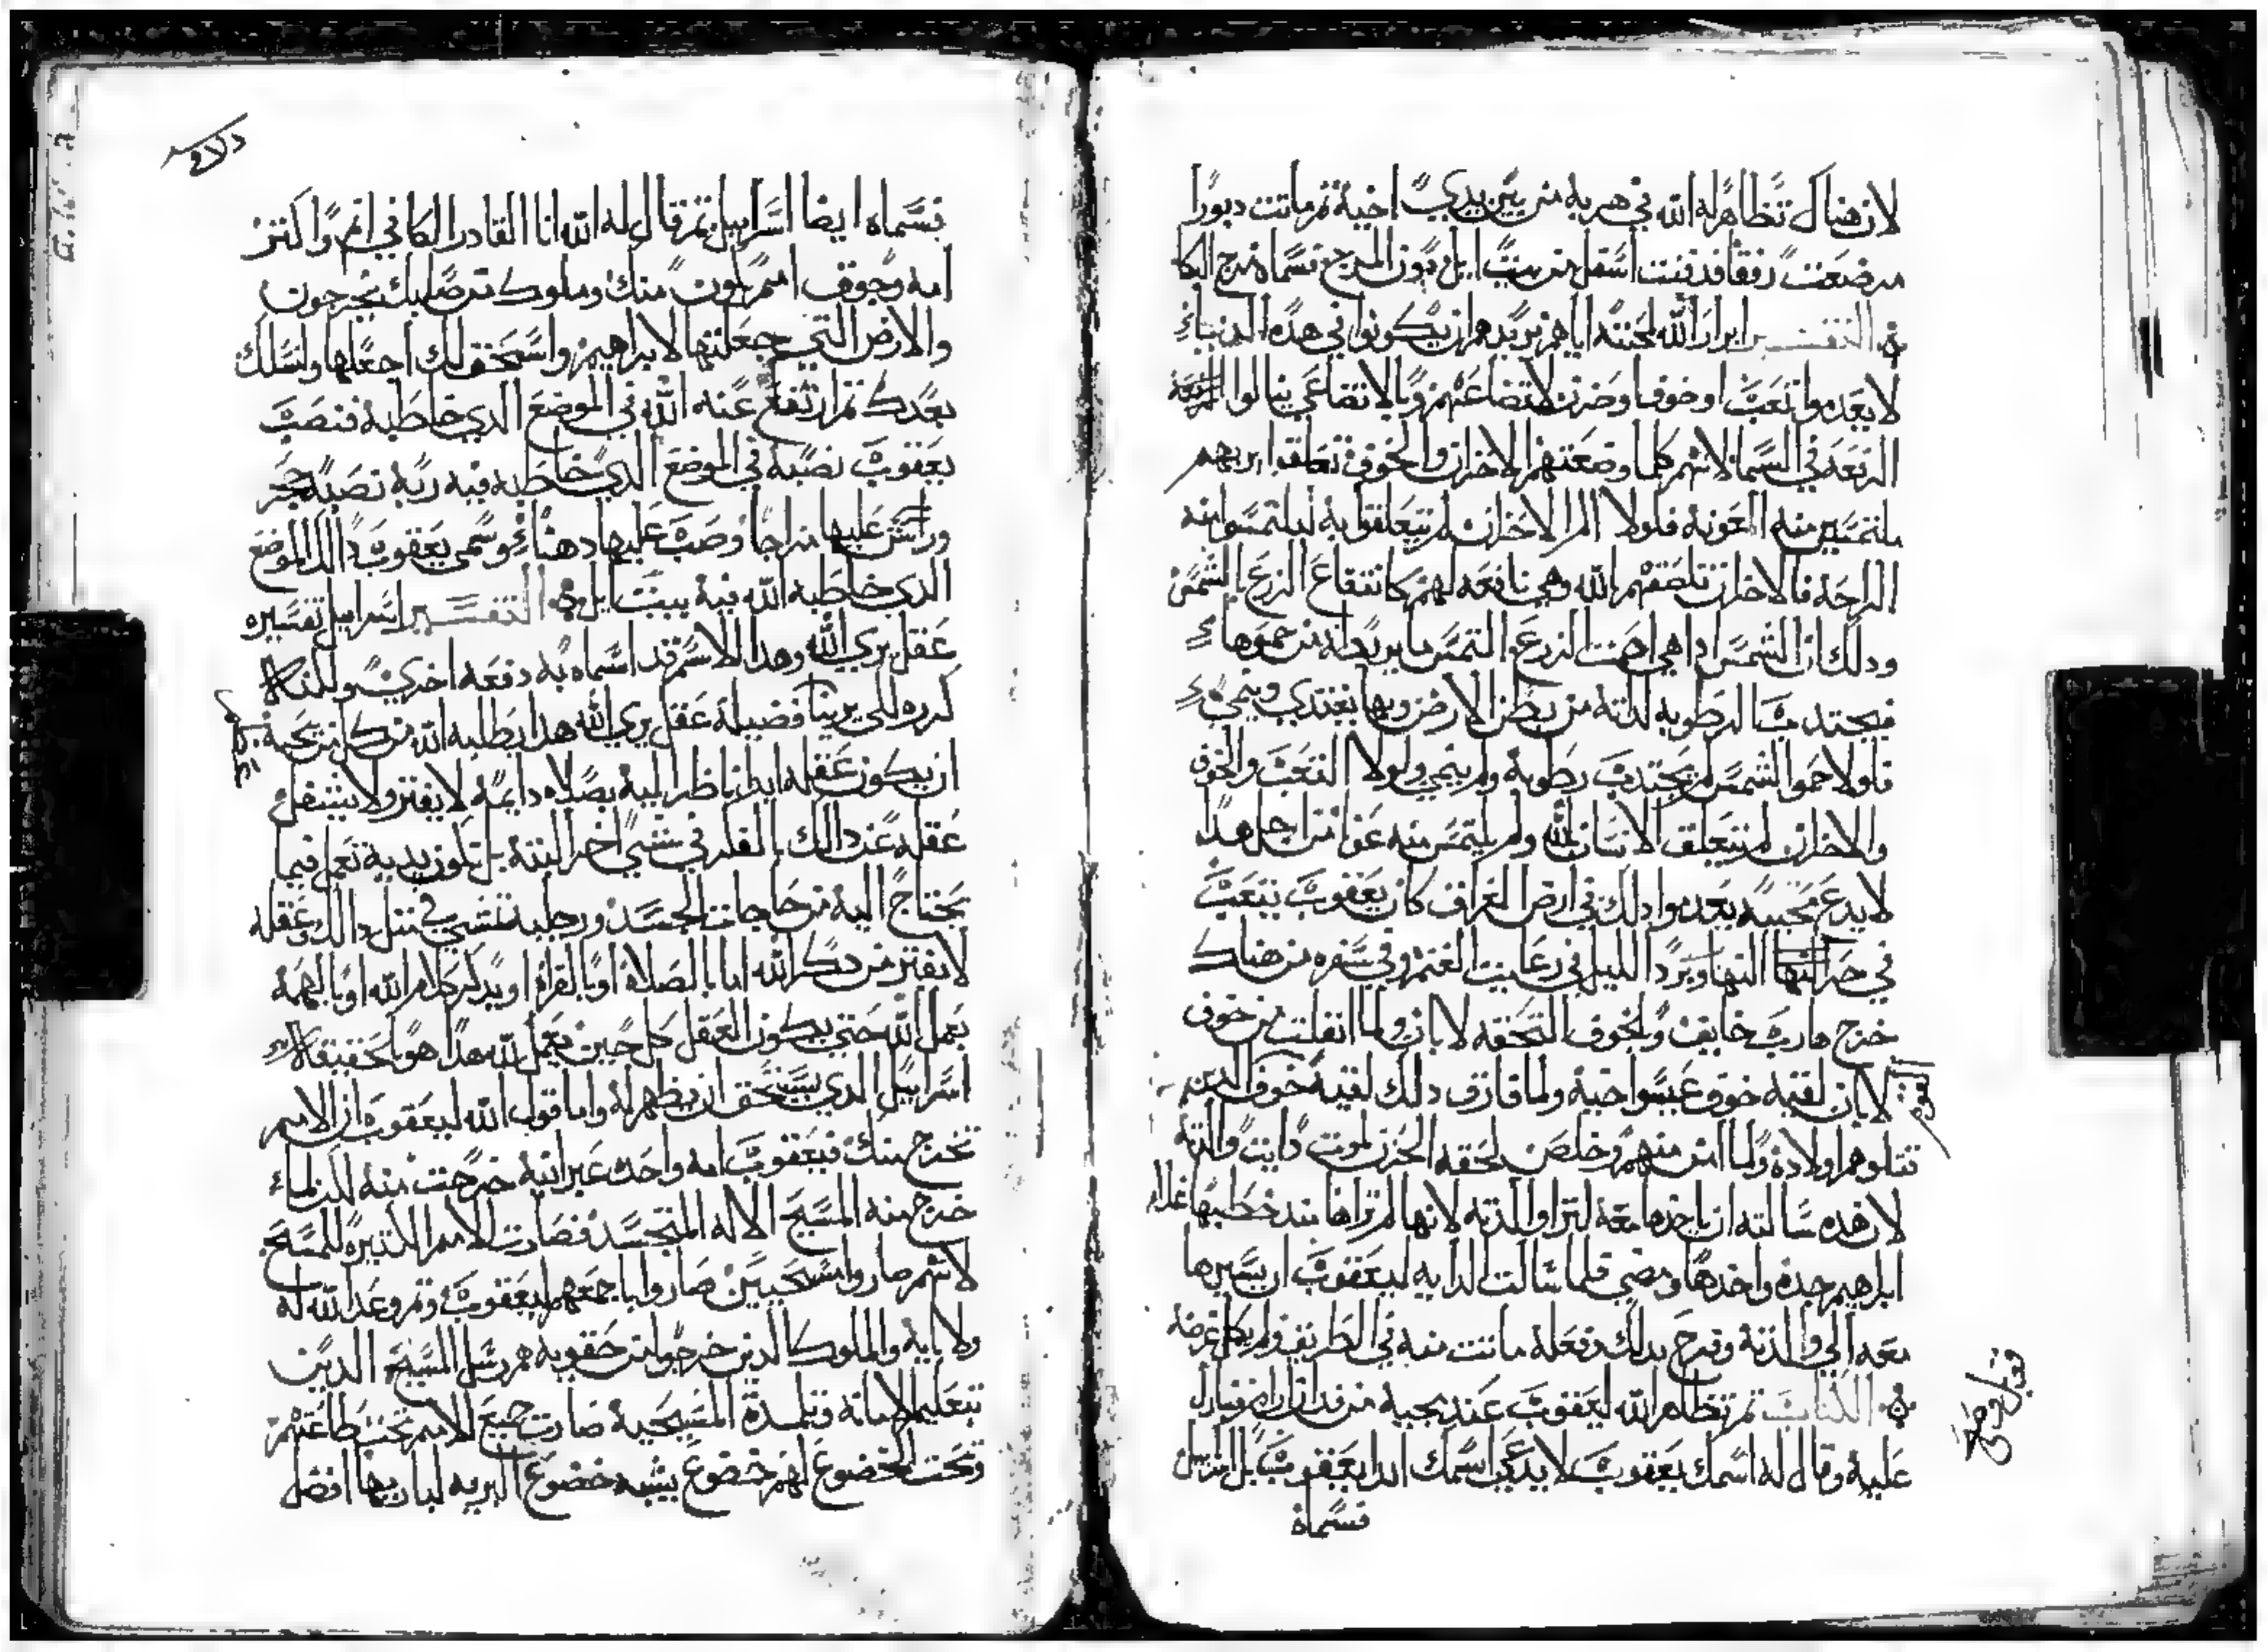 لان هناك تظاهر له الله في هربه من بين يدي اخيه ثم ماتت دبورا
مرضعت رفقا فدفنت اسفل من بيت ايل دون المرج فسماه مرج البكا
التفسير ابرار الله لمحبته اياهم يريدهم ان يكونوا في هذه الدنيا
لا يعدموا تعب او خوف او حزن لاتضاعهم وبالاتضاع ينالوا الرفعة
الرفعه في السما لانهم كلما وضعتهم الاحزان والخوف تعلقوا بربهم
ملتمسين منه العونه فلولا الم الاحزان لم يتعلقوا به ليلتمسوا منه
الراحه فالاحزان تلصقهم الله وهي نافعه لهم كانتفاع الزرع بالشمس
ودلك ان الشمس ادا هي احمت الزرع والتمس ما يريد له من حموها
فيجتدب الرطوبه لداته من بطن الارض وبها يغتدي وينمي
فلولا حمو الشمس لم يجتدب رطوبة ولم ينمي ولولا التعب والخوف
والاحزان لم يتعلق الانسان لله ولم يلتمس منه عون من اجل هدا
لا يدع محبيه يعدموا دلك في ارض العراق كان يعقوب بتعب
في حر النهار وبرد الليل في رعايت الغنم وفي سفره من هناك
خرج هارب خايف ولخوف التحقه لابان ولما انفلت من خوف
لابان لقيه خوف عيسوا اخيه ولما فارق دلك لقيه خوف الدين
القوم
قتلوهم اولاده ولما امن منهم وخلص لحقه الحزن لموت دايت والدته
لان هده سالته ان ياخدها معه لترا والدته لانها لم تراها مند خطبها غلام
ابراهيم جده واخدها ومضي فلما سالت الدايه ليعقوب ان يسيرها
معه الي والدته وفرح بدلك وفعله ماتت منه في الطريق ولم يكمل غرضه
الكتاب ثم تظاهر الله ليعقوب عند مجيه من فدان ارام فبارك
عليه وقال له اسمك يعقوب لا يدعي اسمك ابدا يعقوب بل اسراييل
فسماه
فسماه ايضا اسراييل ثم قال له الله انا القادر الكافي انم واكتر
امه وجوق امم يكون منك وملوك من صلبك يخرجون
والارض التي جعلتها لابراهيم واسحق لك اجعلها ولنسلك
بعدك ثم ارتفع عنه الله في الموضع الدي خاطبه فنصب
يعقوب نصبه في الموضع الدي خاطبه فيه ربه نصبة حجر
ورش عليها مزاجا وصب عليها دهنا وسمى يعقوب دالك الموضع
الدي خاطبه الله فيه بيت ايل التفسير اسراييل تفسيره
عقل يري الله وهدا الاسم قد اسماه به دفعه اخري ولكنه
كرره لكي يرينا فضيلة عقل يري الله هدا يطلبه الله من كل من يحبه
ان يكون عقله ابدا ناظر اليه بصلاه دايمه لا يفتر ولا يشتغل
عقله عن دالك بالفكر في شي اخر البته بل تكون يديه تعمل فيما
يحتاج اليه من حاجات الجسد ورجليه تمشي في متل دالك وعقله
لا يفتر من دكر الله اما بالصلاة او بالقراة او يدكر كلام الله او بالهمة
بعمل الله حتى يكون العقل كل حين يعمل لله هدا هو بالحقيقه
اسراييل الدي يستحق ان يظهر له واما قول الله ليعقوب ان الامم
تخرج منك فيعقوب امه واحده عبرانيه خرجت منه لكن لما
خرج منه المسيح الاله المتجسد فصارت الامم الكتيره للمسيح
لانهم صاروا مسيحيين صاروا باجمعهم ليعقوب وتم وعد الله له
ولابايه والملوك الدين خرجوا من حقويه هم رسل المسيح الدين
بتعليم الامانه وتلمدة المسيحية صارت جميع الامم تحت طاعتهم
وتحت الخضوع لهم خضوع يشبه خضوع البريه لباريها افضل